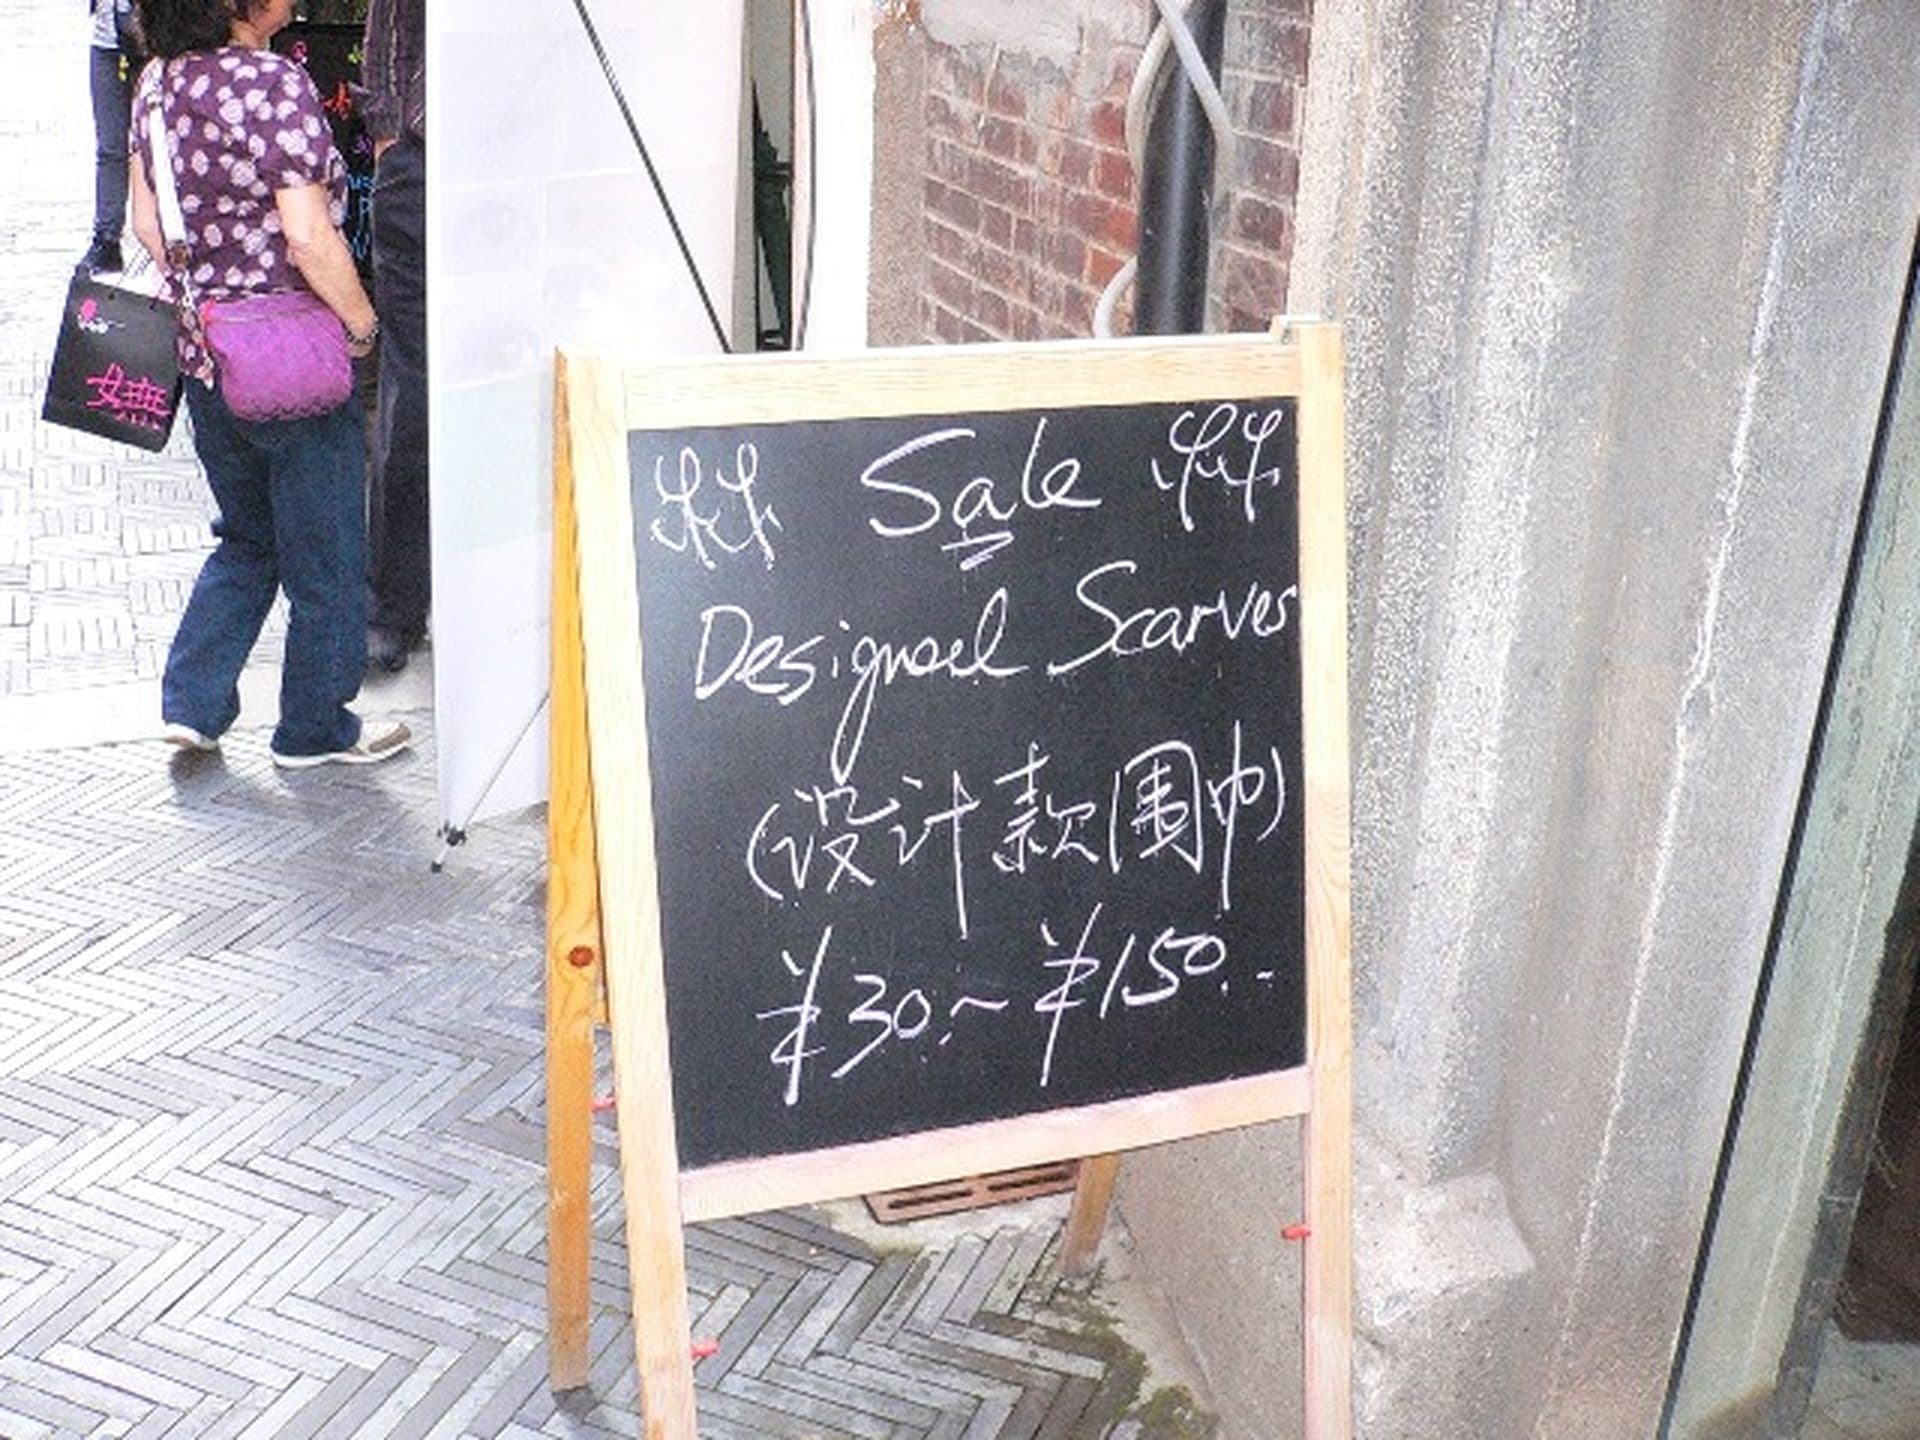 Sale
Designed Scarves
(设计款圍巾)
¥30.~ ¥150.-